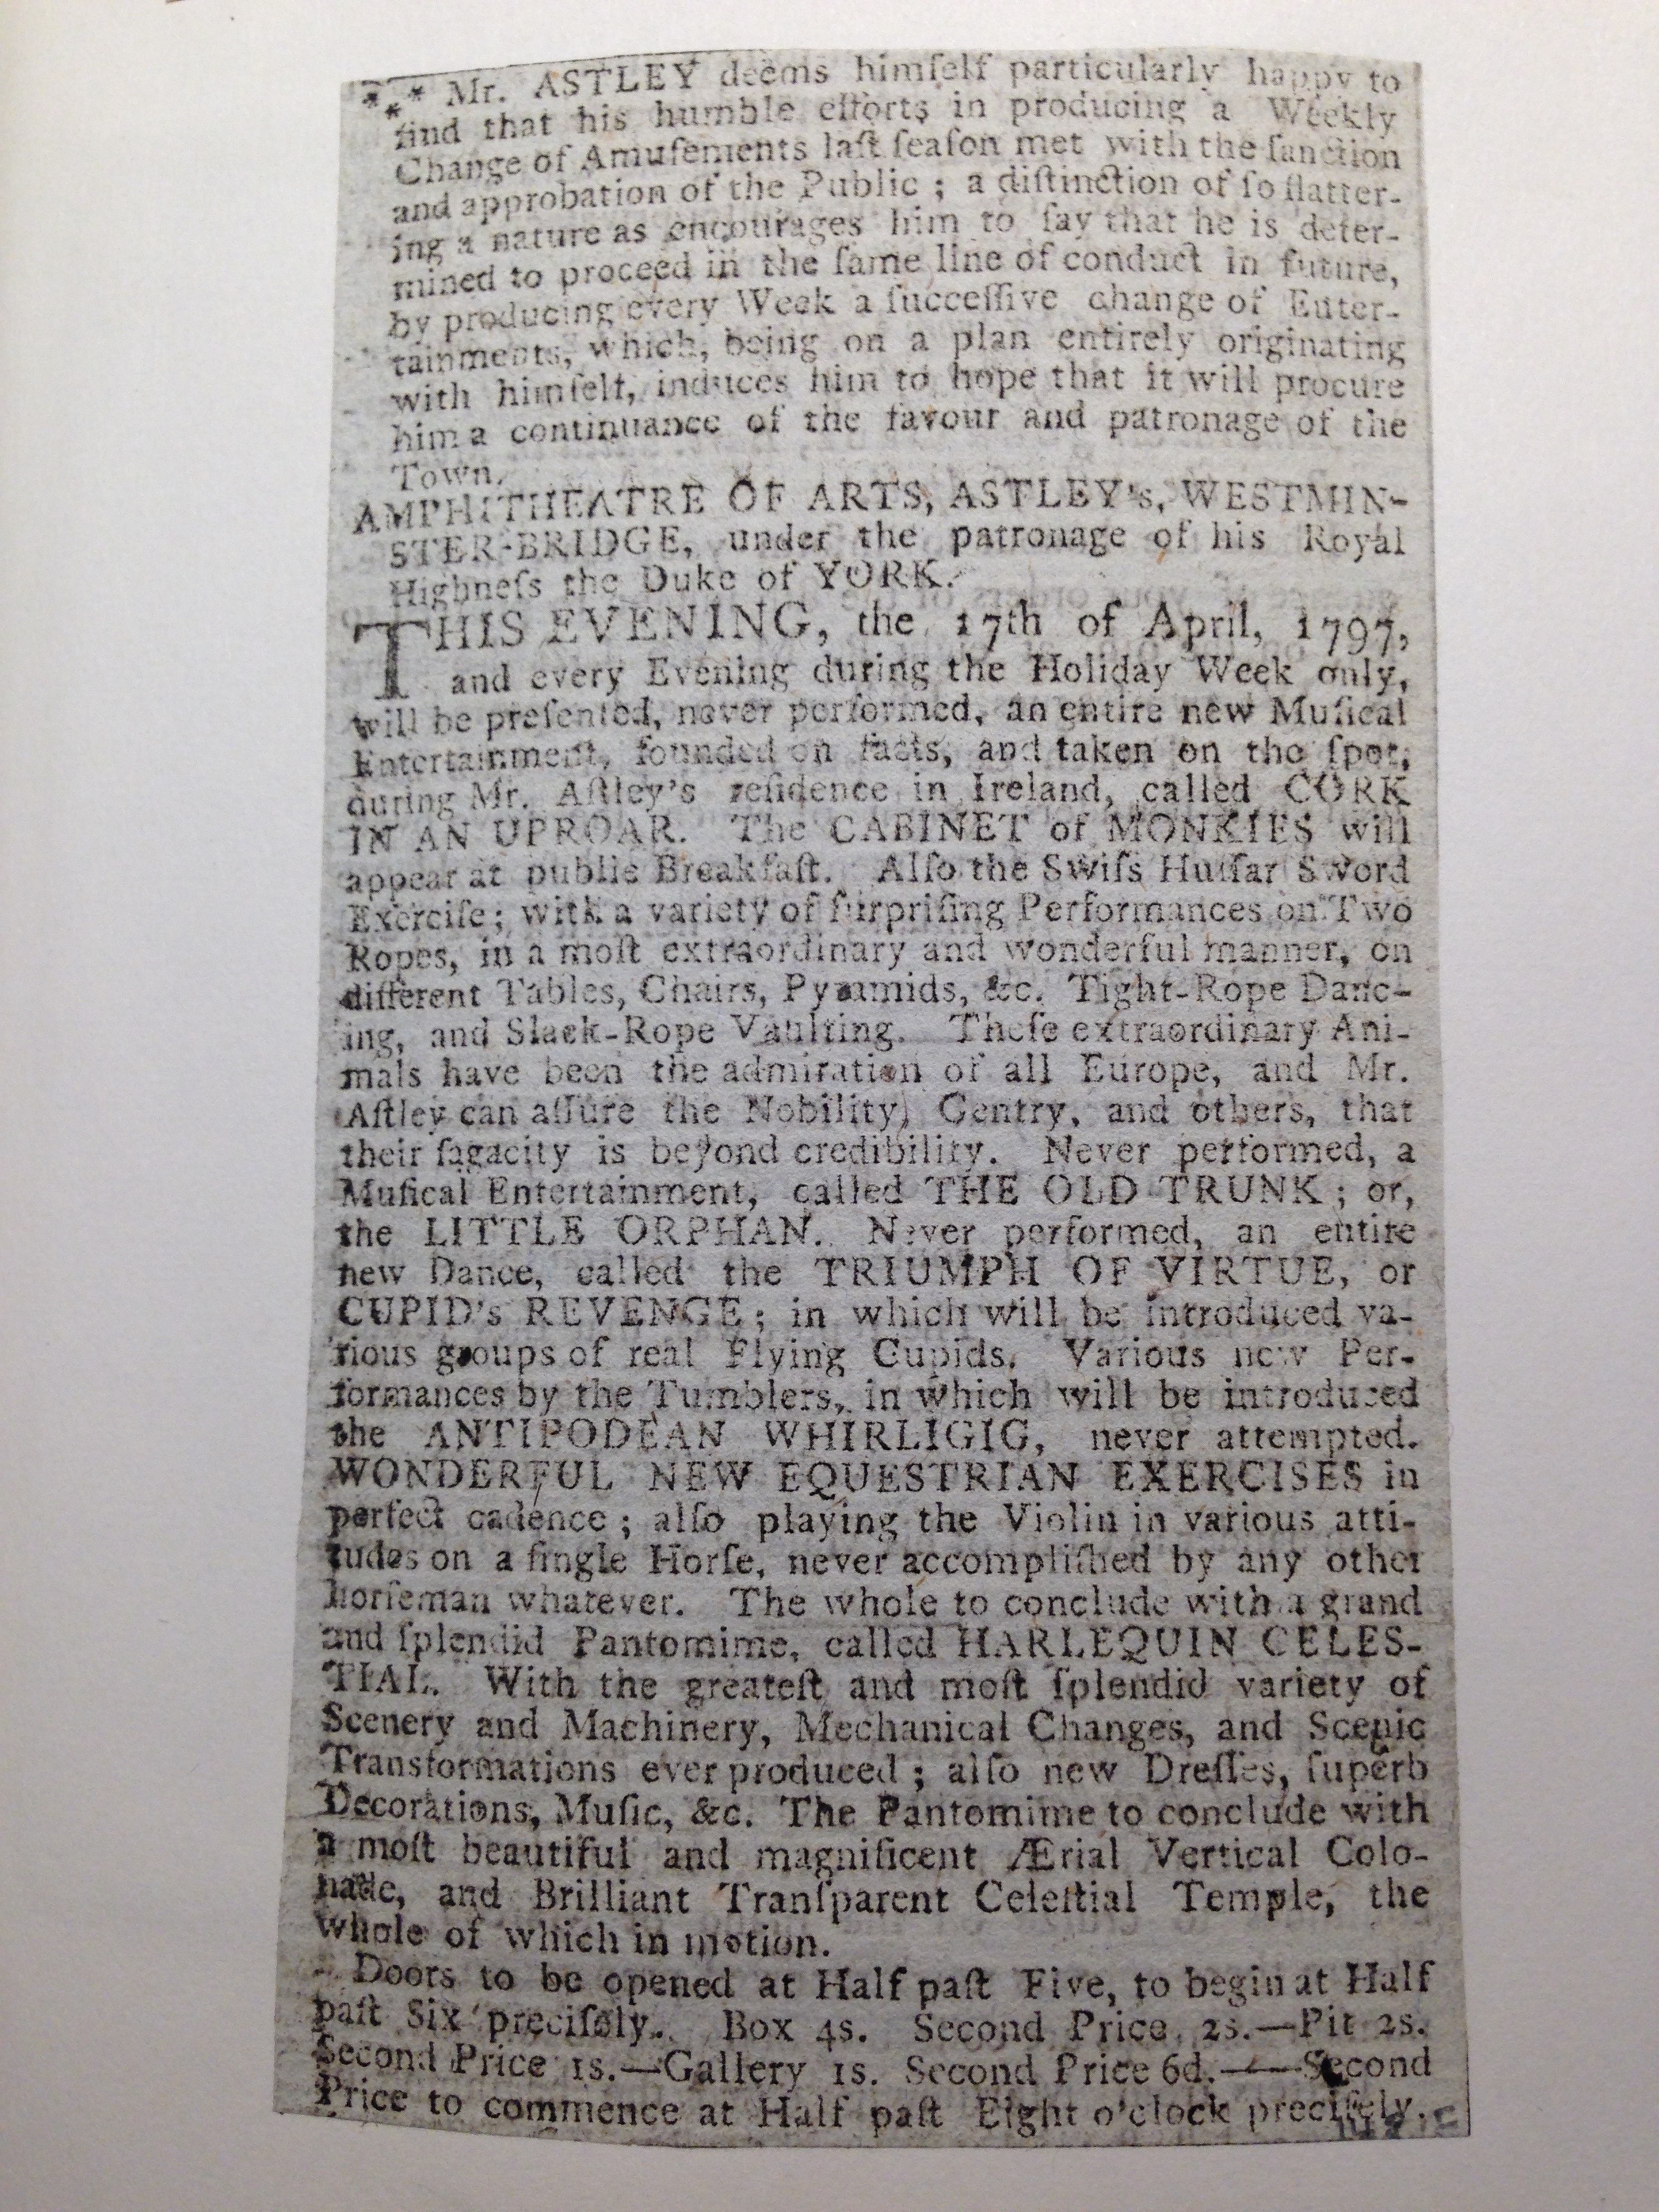 *** Mr. ASTLEY deems himſelf particularly happy to
find that his humble efforts in producing a Weekly
Change of Amuſements laſt ſeaſon met with the ſanction
and approbation of the Public ; a diſtinction of ſo flatter-
ing a nature as encourages him to ſay that he is deter-
mined to proceed in the ſame line of conduct in future,
by producing every Week a ſucceſſive change of Enter-
tainments, which, being on a plan entirely originating
with himſelf, induces him to hope that it will procure
him a continuance of the favour and patronage of the
Town.
AMPHITHEATRE OF ARTS, ASTLEY's, WESTMIN-
STER-BRIDGE, under the patronage of his Royal
Highneſs the Duke of YORK.
THIS EVENING, the 17th of April, 1797,
and every Evening during the Holiday Week only,
will be preſented, never performed, an entire new Muſical
Entertainment, founded on facts, and taken on the ſpot,
during Mr. Aſtley's reſidence in Ireland, called CORK
IN AN UPROAR. The CABINET of MONKIES will
appear at public Breakfaſt. Alſo the Swiſs Huſſar Sword
Exerciſe ; with a variety of ſurpriſing Performances on Two
Ropes, in a moſt extraordinary and wonderful manner, on
different Tables, Chairs, Pyramids, &c. Tight-Rope Danc-
ing, and Slack-Rope Vaulting. Theſe extraordinary Ani-
mals have been the admiration of all Europe, and Mr.
Aſtley can aſſure the Nobility, Gentry, and others, that
their ſagacity is beyond credibility. Never performed, a
Muſical Entertainment, called THE OLD TRUNK ; or,
the LITTLE ORPHAN. Never performed, an entire
new Dance, called the TRIUMPH OF VIRTUE, or
CUPID's REVENGE ; in which will be introduced va-
rious groups of real Flying Cupids. Various new Per-
formances by the Tumblers, in which will be introduced
the ANTIPODEAN WHIRLIGIG, never attempted.
WONDERFUL NEW EQUESTRIAN EXERCISES in
perfect cadence ; alſo playing the Violin in various atti-
tudes on a ſingle Horſe, never accompliſhed by any other
horſeman whatever. The whole to conclude with a grand
and ſplendid Pantomime, called HARLEQUIN CELES-
TIAL. With the greateſt and moſt ſplendid variety of
Scenery and Machinery, Mechanical Changes, and Scenic
Transformations ever produced ; alſo new Dreſſes, ſuperb
Decorations, Muſic, &c. The Pantomime to conclude with
a moſt beautiful and magnificent Ærial Vertical Colo-
nade, and Brilliant Tranſparent Celeſtial Temple, the
whole of which in motion.
Doors to be opened at Half paſt Five, to begin at Half
paſt Six preciſely. Box 4s. Second Price 2s.—Pit 2s.
Second Price 1s.—Gallery 1s. Second Price 6d.——Second
Price to commence at Half paſt Eight o'clock preciſely.